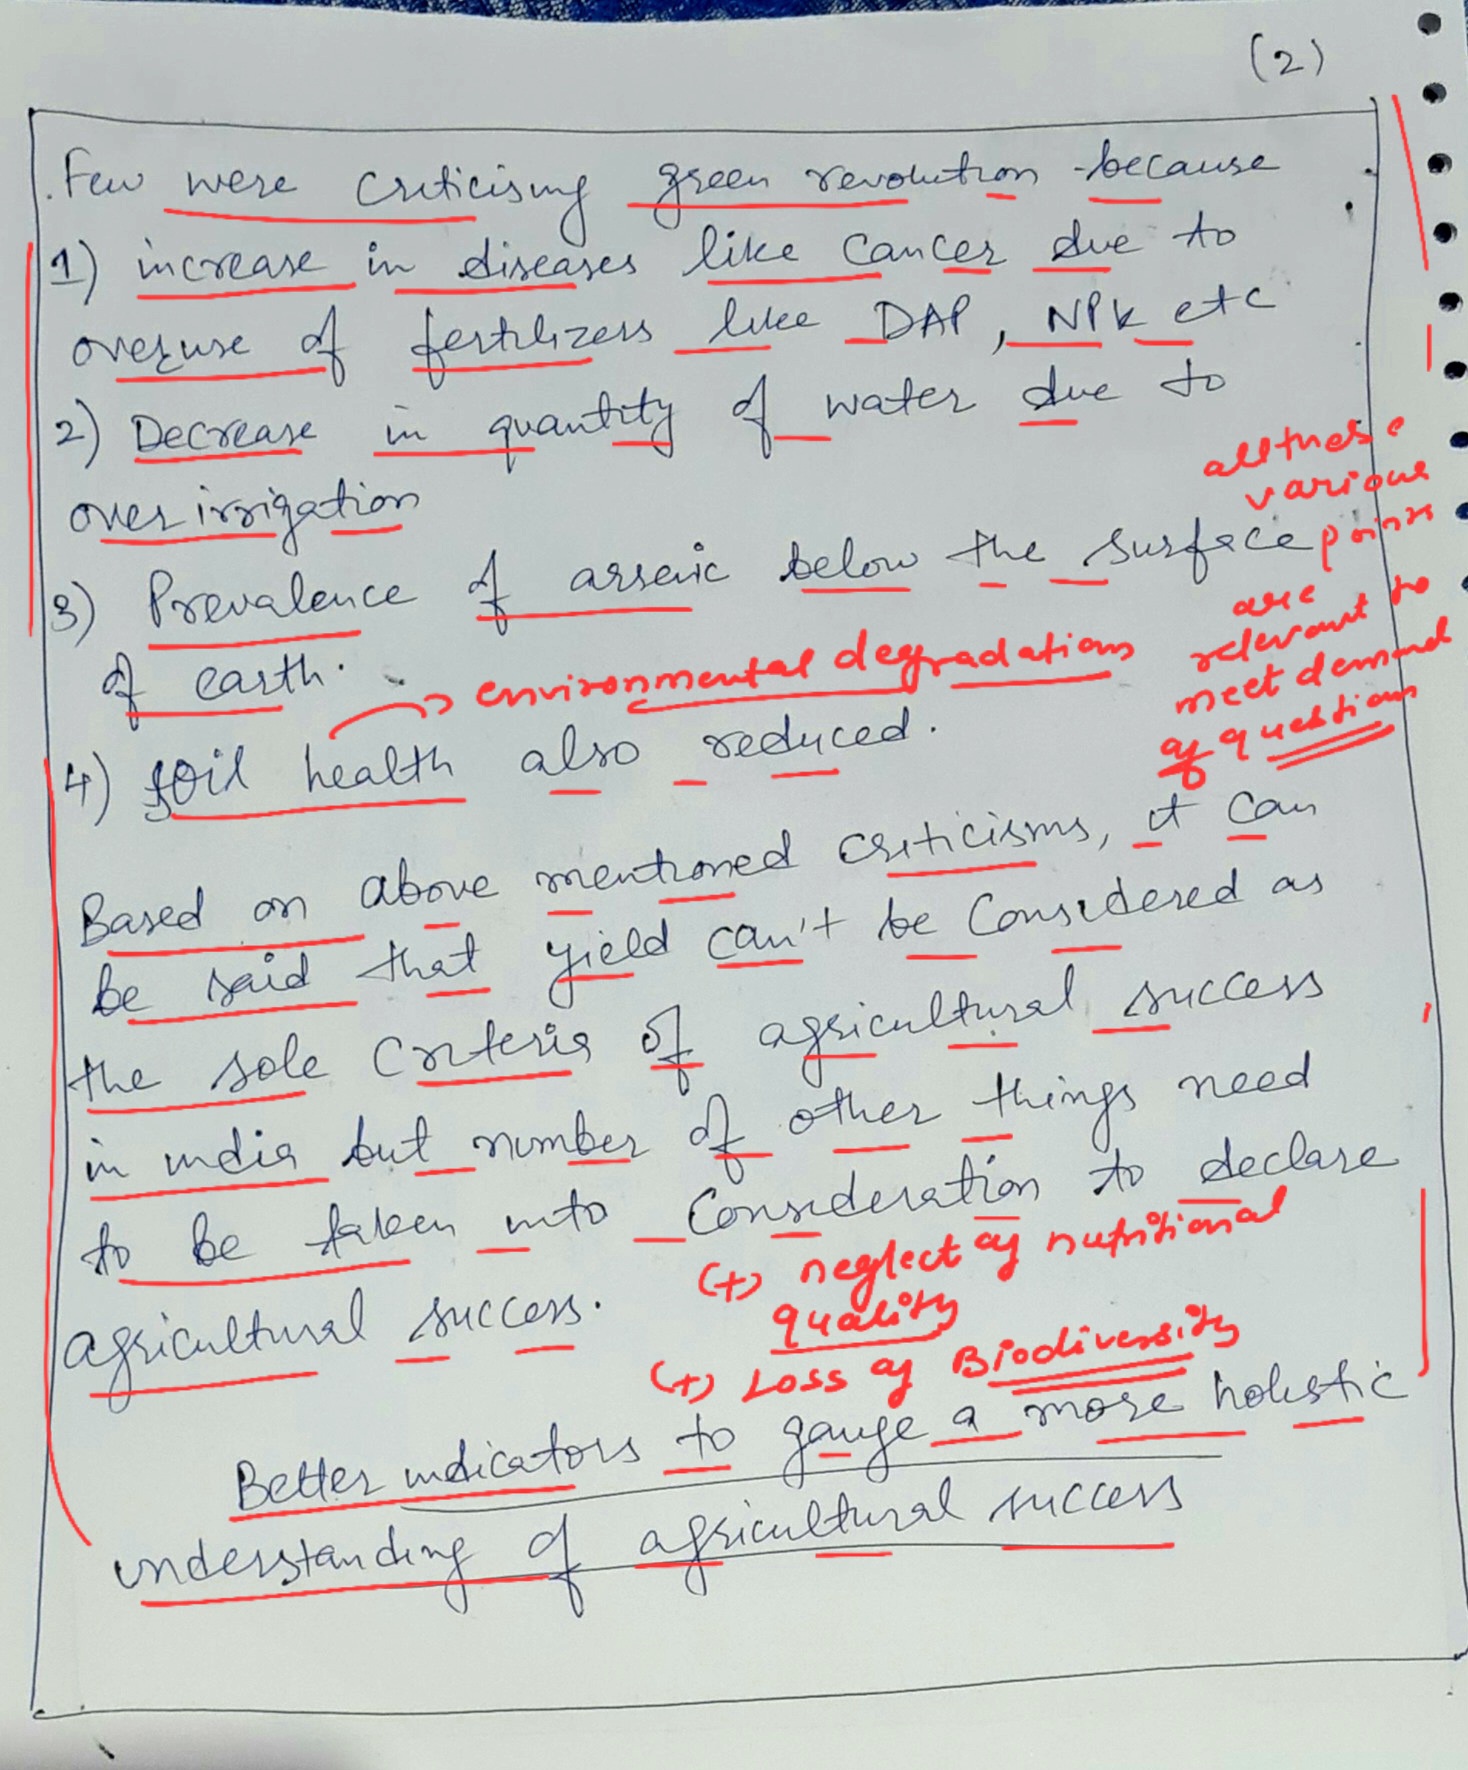 (2)
. Few were criticising green revolution because
1) increase in diseases like cancer due to
overuse of fertilizers like DAP, NPK etc
2) Decrease in quantity of water due to
over irrigation
3) Prevalence of arsenic below the surface
of earth.
4) soil health also reduced.
→ environmental degradation
all these
various
points
are
relevant to
meet demand
of question
Based on above mentioned criticisms, it can
be said that yield can't be considered as
the sole criteria of agricultural success
in india but number of other things need
to be taken into consideration to declare
agricultural success.
(+) neglect of nutritional
quality
(+) Loss of Biodiversity
Better indicators to gauge a more holistic
understanding of agricultural success